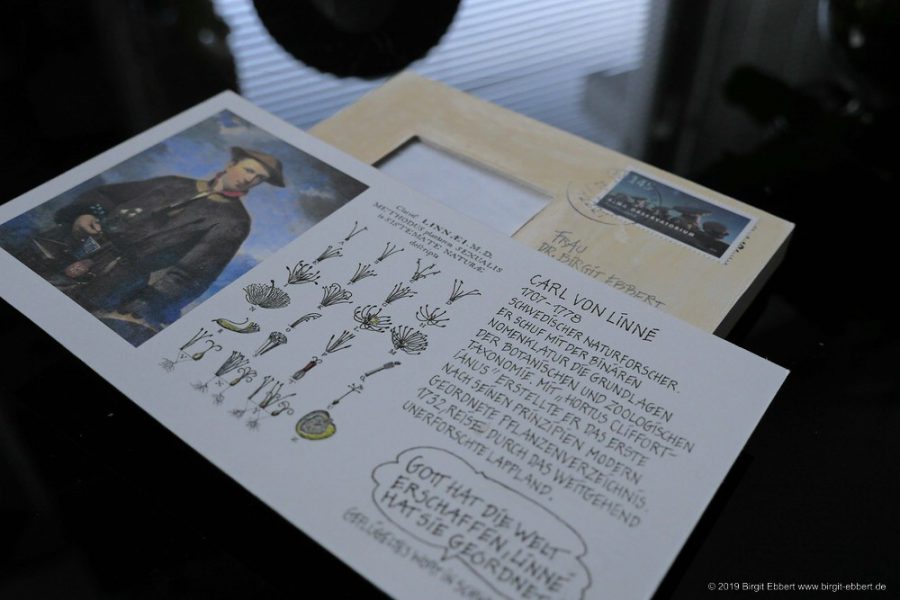 Clarisf. LINNÆI. M. D.
METHODUS plantarum SEXUALIS
in SISTEMATE NATURÆ
descripta
CARL VON LINNÉ
1707-1778
SCHWEDISCHER NATURFORSCHER.
ER SCHUF MIT DER BINÄREN
NOMENKLATUR DIE GRUNDLAGEN
DER BOTANISCHEN UND ZOOLOGISCHEN
TAXONOMIE. MIT „HORTUS CLIFFORT-
IANUS" ERSTELLTE ER DAS ERSTE
NACH SEINEN PRINZIPIEN MODERN
GEORDNETE PFLANZENVERZEICHNIS.
1732, REISE DURCH DAS WEITGEHEND
UNERFORSCHTE LAPPLAND.
GOTT HAT DIE WELT
ERSCHAFFEN, LINNÉ
HAT SIE GEORDNET
GEFLÜGELTES WORT IN
145
FRAU
DR. BIRGIT EBBERT
© 2019 Birgit Ebbert www.birgit-ebbert.de